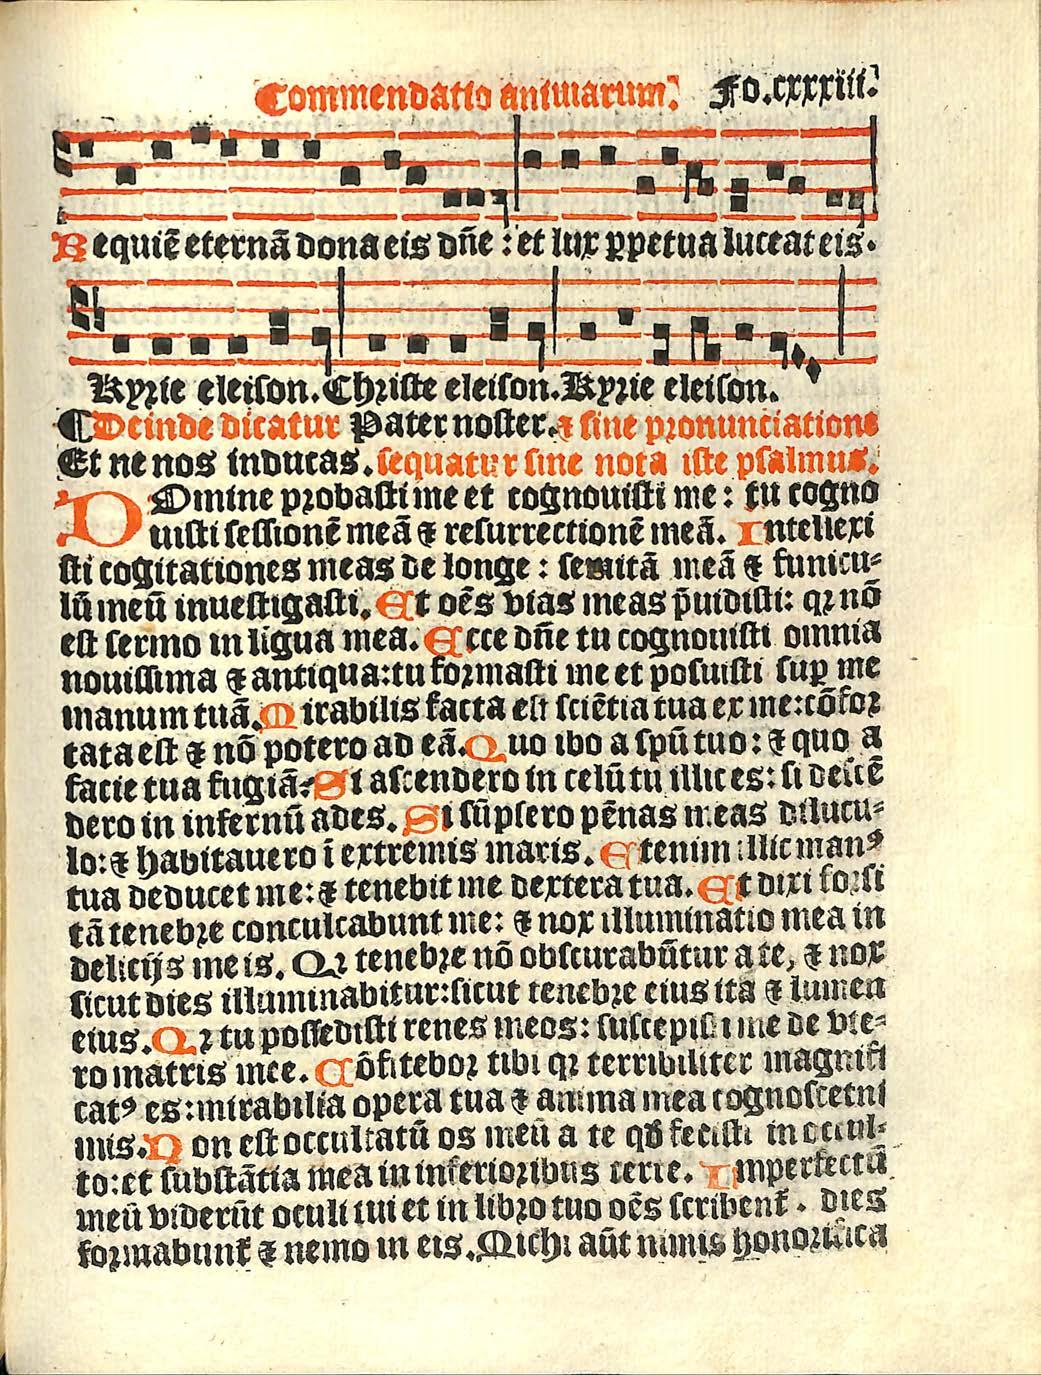 Commendatio animarum. Fo.cxxxiii.
Requiē eternā dona eis dn̄e : et lux ꝑpetua luceat eis.
Kyrie eleison. Christe eleison. Kyrie eleison.
¶ Deinde dicatur Pater noster. ⁊ sine pronunciatione
Et ne nos inducas. sequatur sine nota iste psalmus.
DOmine probasti me et cognouisti me : tu cogno
uisti sessionē meā ⁊ resurrectionē meā. Intellexi
sti cogitationes meas de longe : semitā meā ⁊ funicu-
lū meū inuestigasti. Et oēs vias meas p̄uidisti: qꝛ nō
est sermo in ligua mea. Ecce dn̄e tu cognouisti omnia
nouissima ⁊ antiqua: tu formasti me et posuisti suꝑ me
manum tuā. Mirabilis facta est sciētia tua ex me: cōfor
tata est ⁊ nō potero ad eā. Quo ibo a spū tuo: ⁊ quo a
facie tua fugiā: Si ascendero in celū tu illic es: si descē
dero in infernū ades. Si sūpsero pēnas meas dilucu-
lo: ⁊ habitauero ī extremis maris. Etenim illic manꝰ
tua deducet me: ⁊ tenebit me dextera tua. Et dixi forsi
tā tenebre conculcabunt me: ⁊ nox illuminatio mea in
delicijs meis. Qꝛ tenebre nō obscurabūtur a te, ⁊ nox
sicut dies illuminabitur: sicut tenebre eius ita ⁊ lumen
eius. Qꝛ tu possedisti renes meos: suscepisti me de vte-
ro matris mee. Cōfitebor tibi qꝛ terribiliter magnifi
catꝰ es: mirabilia opera tua ⁊ anima mea cognoscet ni
mis. Non est occultatū os meū a te qđ fecisti in occul-
to: et substātia mea in inferioribus terre. Imperfectū
meū viderūt oculi tui et in libro tuo oēs scribenť. dies
formabunť ⁊ nemo in eis. Michi aūt nimis honorifica